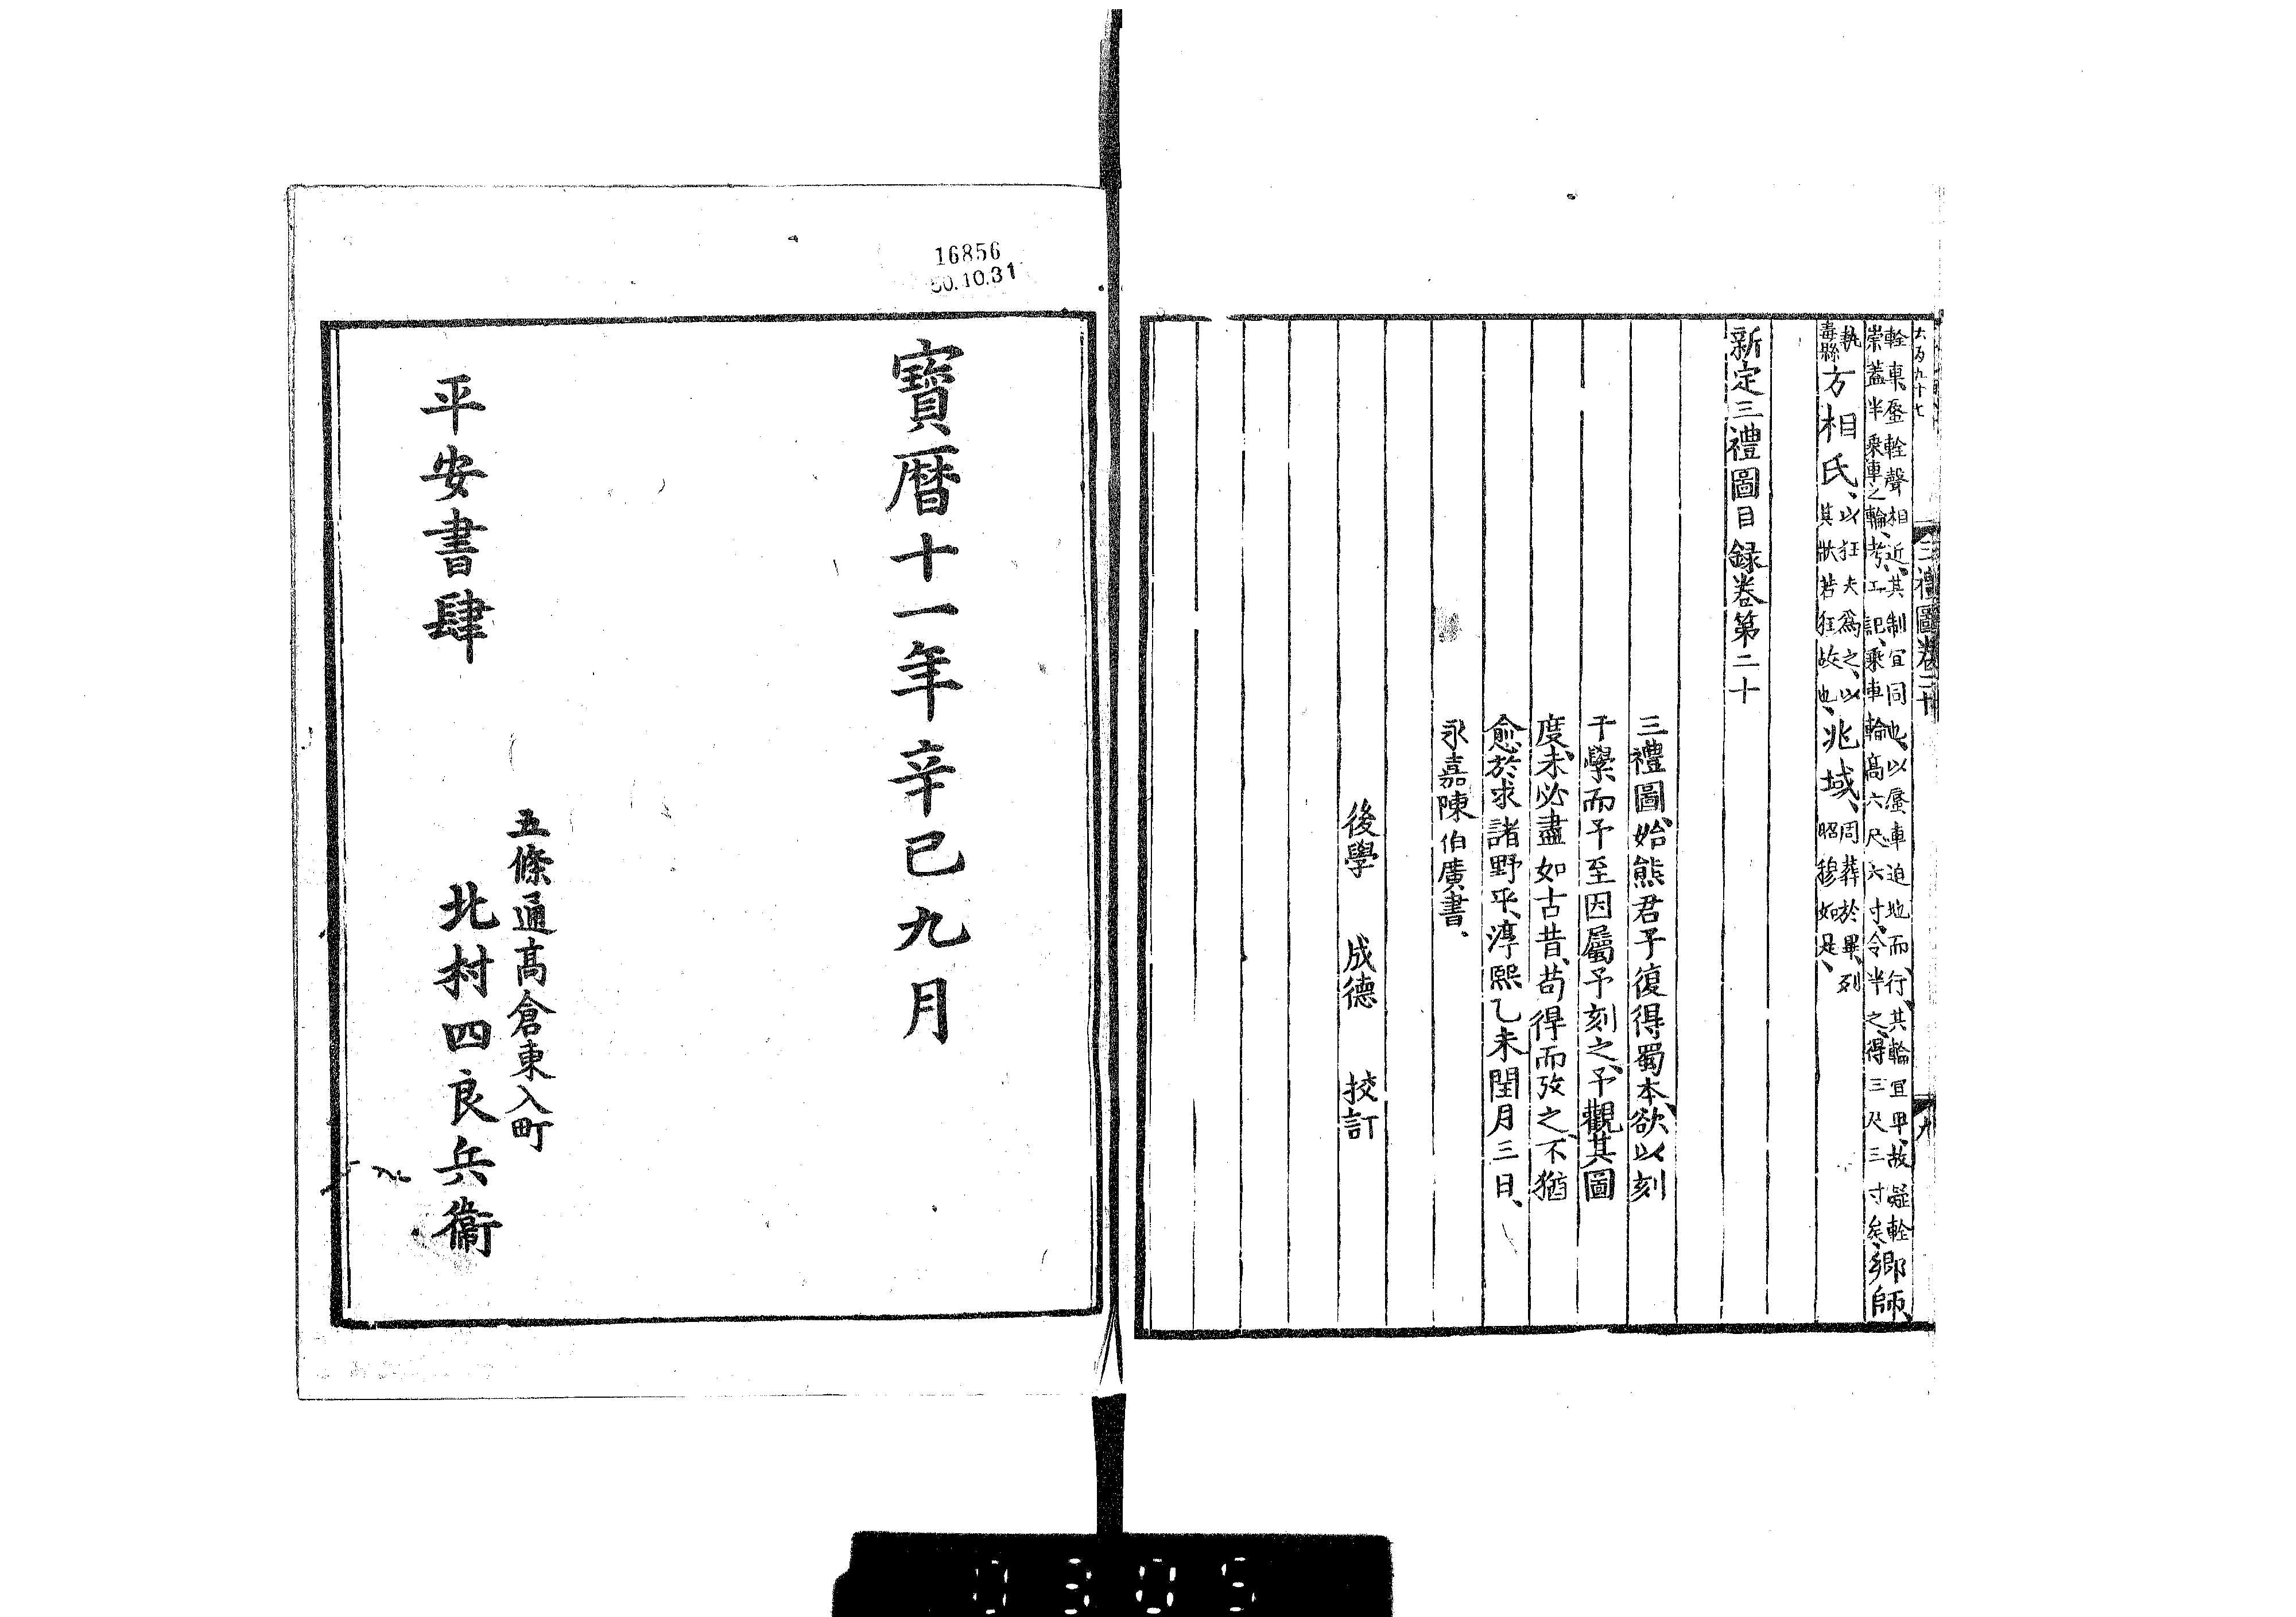 三禮圖卷二十
九
輇車、蜃輇聲相近、其制宜同也、以蜃車迫地而行、其輪宜卑、故疑輇
崇蓋半乘車之輪、考工記、乘車輪高六尺六寸、令半之、得三尺三寸矣、鄉師、
執
纛縣方相氏、以狂夫爲之、以
其狀若狂故也、兆域、周葬於畢、列
昭穆如是、
新定三禮圖目録卷第二十
三禮圖、始熊君子復得蜀本、欲以刻
于學、而予至、因屬予刻之、予觀其圖
度、未必盡如古昔、苟得而攷之、不猶
愈於求諸野乎、淳熙乙未閏月三日、
永嘉陳伯廣書、
後學 成德 挍訂
16856
50.10.31
寶暦十一年辛巳九月
五條通高倉東入町
平安書肆 北村四良兵衞
0305